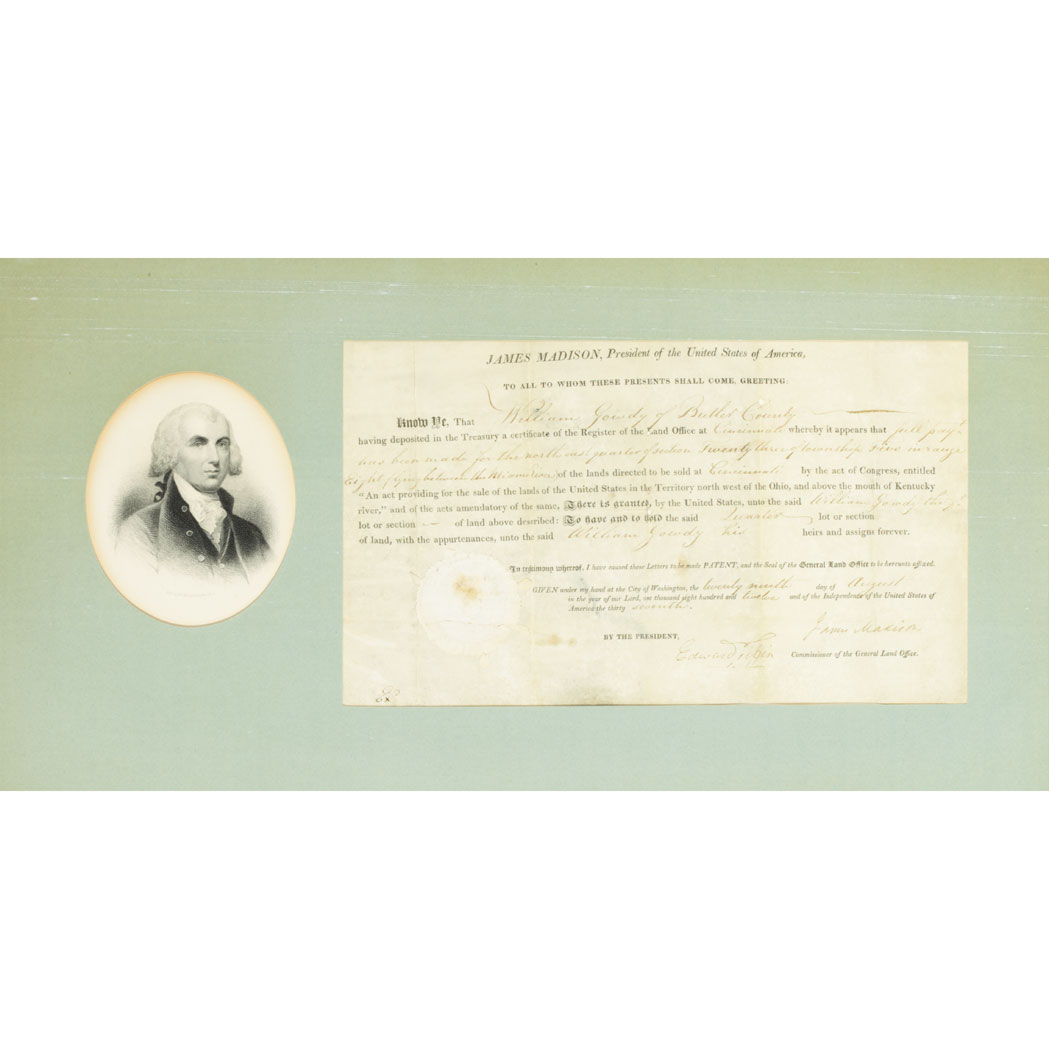 JAMES MADISON, President of the United States of America,
TO ALL TO WHOM THESE PRESENTS SHALL COME, GREETING:
Know Ye, That William Gowdy of Butler County
having deposited in the Treasury a certificate of the Register of the Land Office at Cincinnati whereby it appears that full pay-
has been made for the north east quarter of section Twenty three of township Five in range
Eight (lying between the Miami Rivers) of the lands directed to be sold at Cincinnati by the act of Congress, entitled
“An act providing for the sale of the lands of the United States in the Territory north west of the Ohio, and above the mouth of Kentucky
river,” and of the acts amendatory of the same, There is granted, by the United States, unto the said William Gowdy the
lot or section — of land above described: To have and to hold the said quarter lot or section
of land, with the appurtenances, unto the said William Gowdy his heirs and assigns forever.
In testimony whereof, I have caused these Letters to be made PATENT, and the Seal of the General Land Office to be hereunto affixed.
GIVEN under my hand at the City of Washington, the twenty ninth day of August
in the year of our Lord, one thousand eight hundred and twelve and of the Independence of the United States of
America the thirty seventh.
James Madison
BY THE PRESIDENT,
Edward Tiffin Commissioner of the General Land Office.